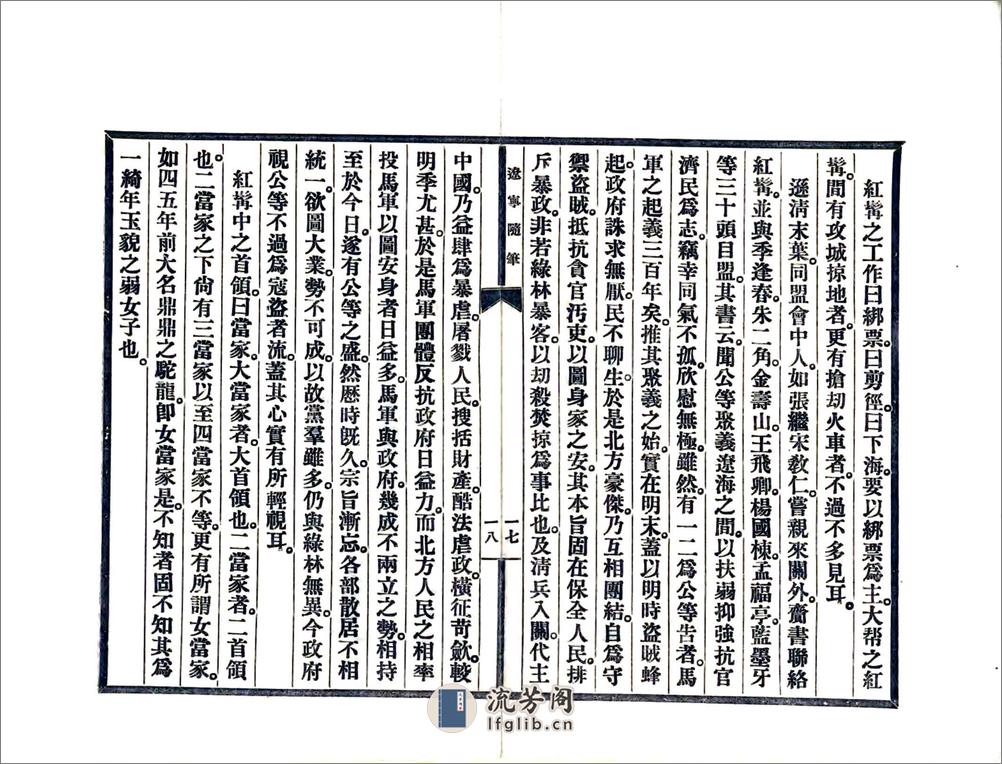 紅鬍之工作曰綁票。曰剪徑。曰下海。要以綁票爲主。大帮之紅
鬍。間有攻城掠地者。更有搶刧火車者。不過不多見耳。
遜清末葉。同盟會中人。如張繼宋敎仁。嘗親來關外。賫書聯絡
紅鬍。並與季逢春。朱二角。金壽山。王飛卿。楊國棟。孟福亭。藍墨牙
等三十頭目盟。其書云。聞公等聚義遼海之間。以扶弱抑強抗官
濟民爲志。竊幸同氣不孤。欣慰無極。雖然。有一二爲公等吿者。馬
軍之起義三百年矣。推其聚義之始。實在明末。蓋以明時盜賊蜂
起。政府誅求無厭。民不聊生。於是北方豪傑。乃互相團結。自爲守
禦盜賊。抵抗貪官汚吏。以圖身家之安。其本旨固在保全人民。排
斥暴政。非若綠林暴客。以刧殺焚掠爲事比也。及淸兵入關。代主
遼寧隨筆
一七
一八
中國。乃益肆爲暴虐。屠戮人民。搜括財產。酷法虐政。橫征苛歛。較
明季尤甚。於是馬軍團體。反抗政府日益力。而北方人民之相率
投馬軍以圖安身者日益多。馬軍與政府。幾成不兩立之勢。相持
至於今日。遂有公等之盛。然歷時旣久。宗旨漸忘。各部散居。不相
統一。欲圖大業。勢不可成。以故黨羣雖多。仍與綠林無異。今政府
視公等不過爲寇盜者流。蓋其心實有所輕視耳。
紅鬍中之首領。曰當家。大當家者。大首領也。二當家者。二首領
也。二當家之下。尙有三當家以至四當家不等。更有所謂女當家。
如四五年前大名鼎鼎之駝龍。卽女當家是。不知者固不知其爲
一綺年玉貌之弱女子也。
流芳阁
lfglib.cn